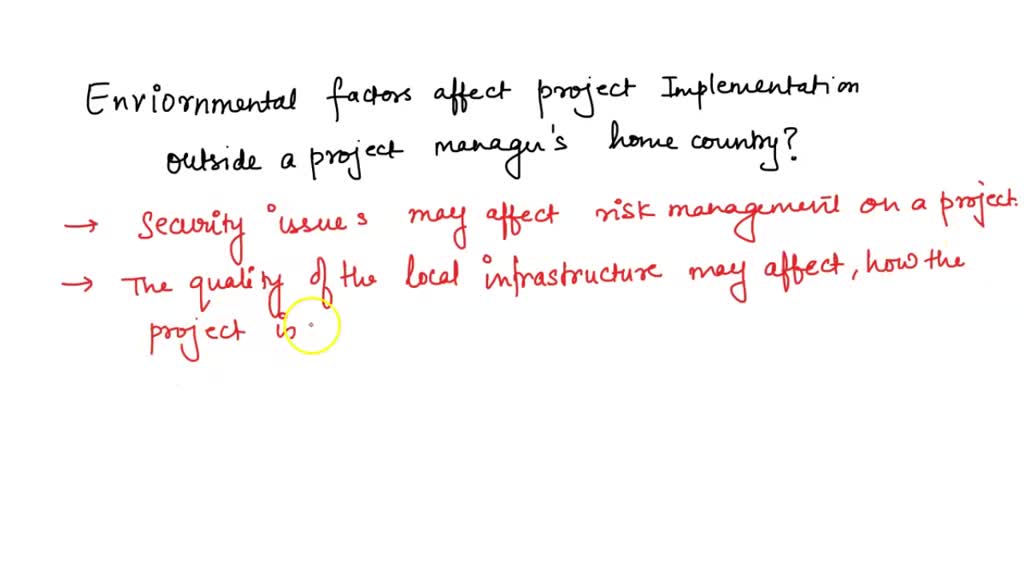 Enviornmental factors affect project Implementation
outside a project manager's home country?
→ Security issues may affect risk management on a project.
→ The quality of the local infrastructure may affect, how the
project is